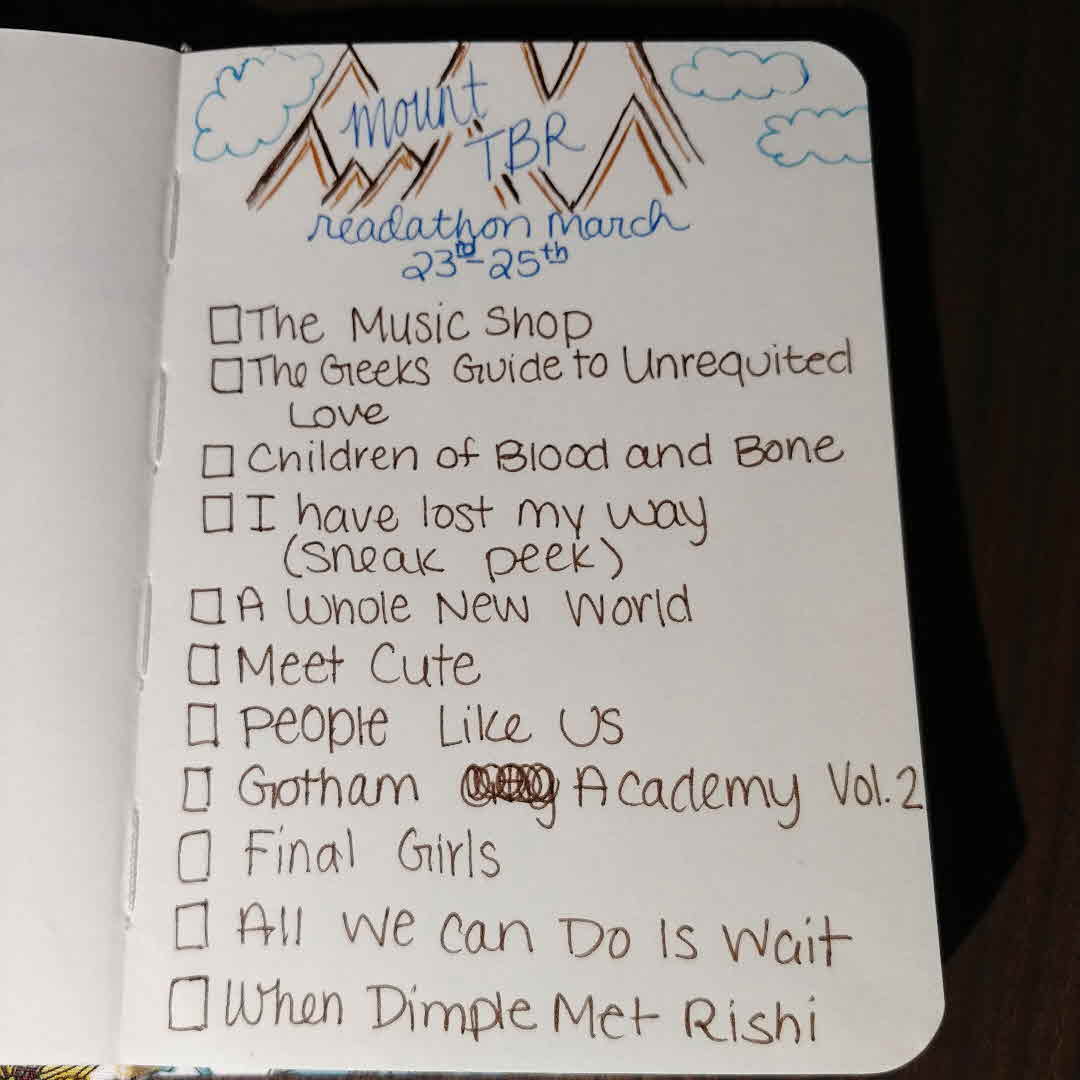 mount
TBR
readathon March
23rd-25th
The Music Shop
The Geeks Guide to Unrequited
Love
Children of Blood and Bone
I have lost my way
(Sneak peek)
A Whole New World
Meet Cute
People Like Us
Gotham Academy Vol. 2
Final Girls
All We Can Do Is Wait
When Dimple Met Rishi